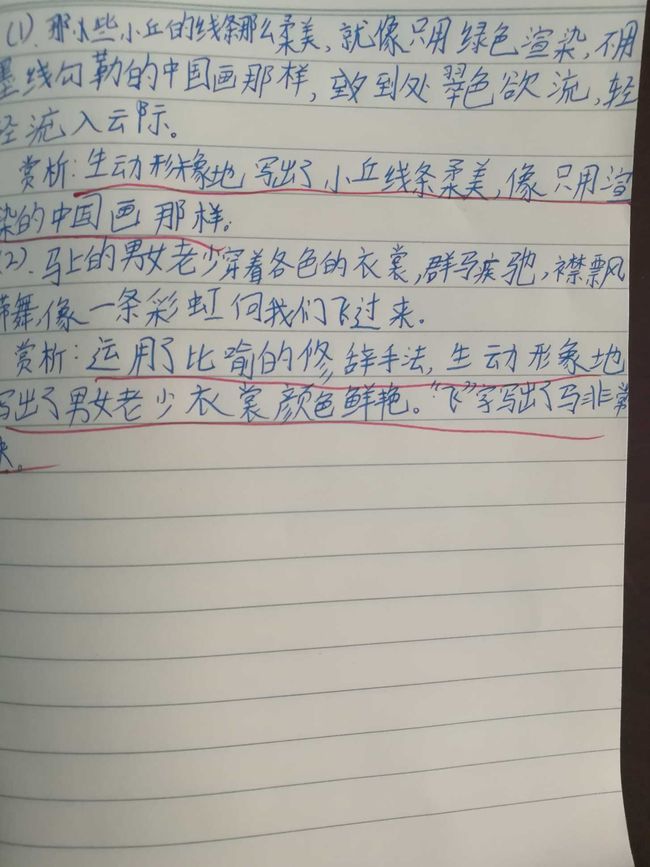 (1).那些小丘的线条那么柔美,就像只用绿色渲染,不用
墨线勾勒的中国画那样,到处翠色欲流,轻
轻流入云际。
赏析:生动形象地写出了小丘线条柔美,像只用渲
染的中国画那样。
(2).马上的男女老少穿着各色的衣裳,群马疾驰,襟飘
带舞,像一条彩虹向我们飞过来。
赏析:运用了比喻的修辞手法,生动形象地
写出了男女老少衣裳颜色鲜艳。“飞”字写出了马非常
快。